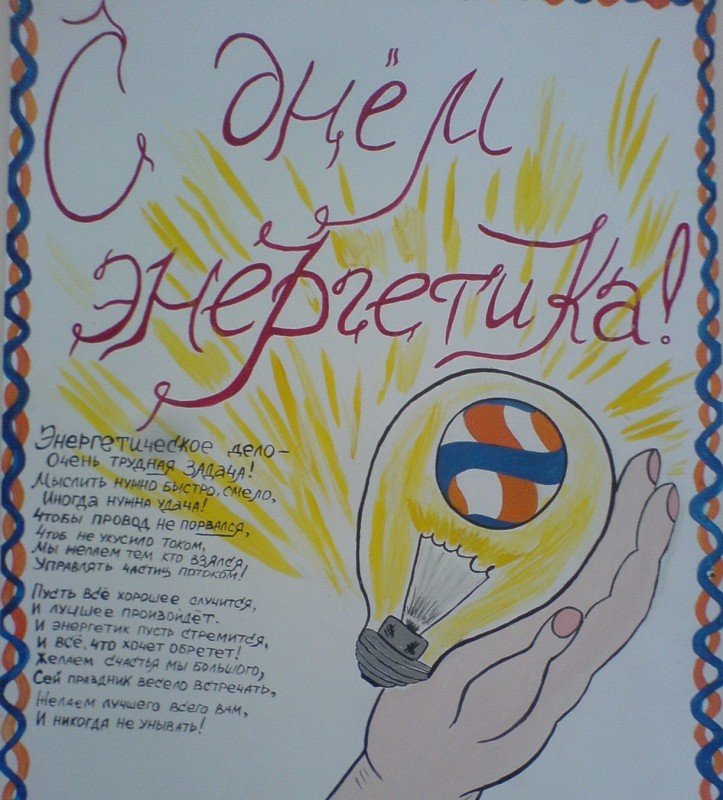 С днём
энергетика!
Энергетическое дело–
Очень трудная задача!
Мыслить нужно быстро, смело,
Иногда нужна удача!
Чтобы провод не порвался,
Чтоб не укусило током,
Мы желаем тем кто взялся,
Управлять частиц потоком!
Пусть всё хорошее случится,
И лучшее произойдёт.
И энергетик пусть стремится,
И всё, что хочет обретет!
Желаем счастья мы большого,
Сей праздник весело встречать,
Желаем лучшего всего вам,
И никогда не унывать!